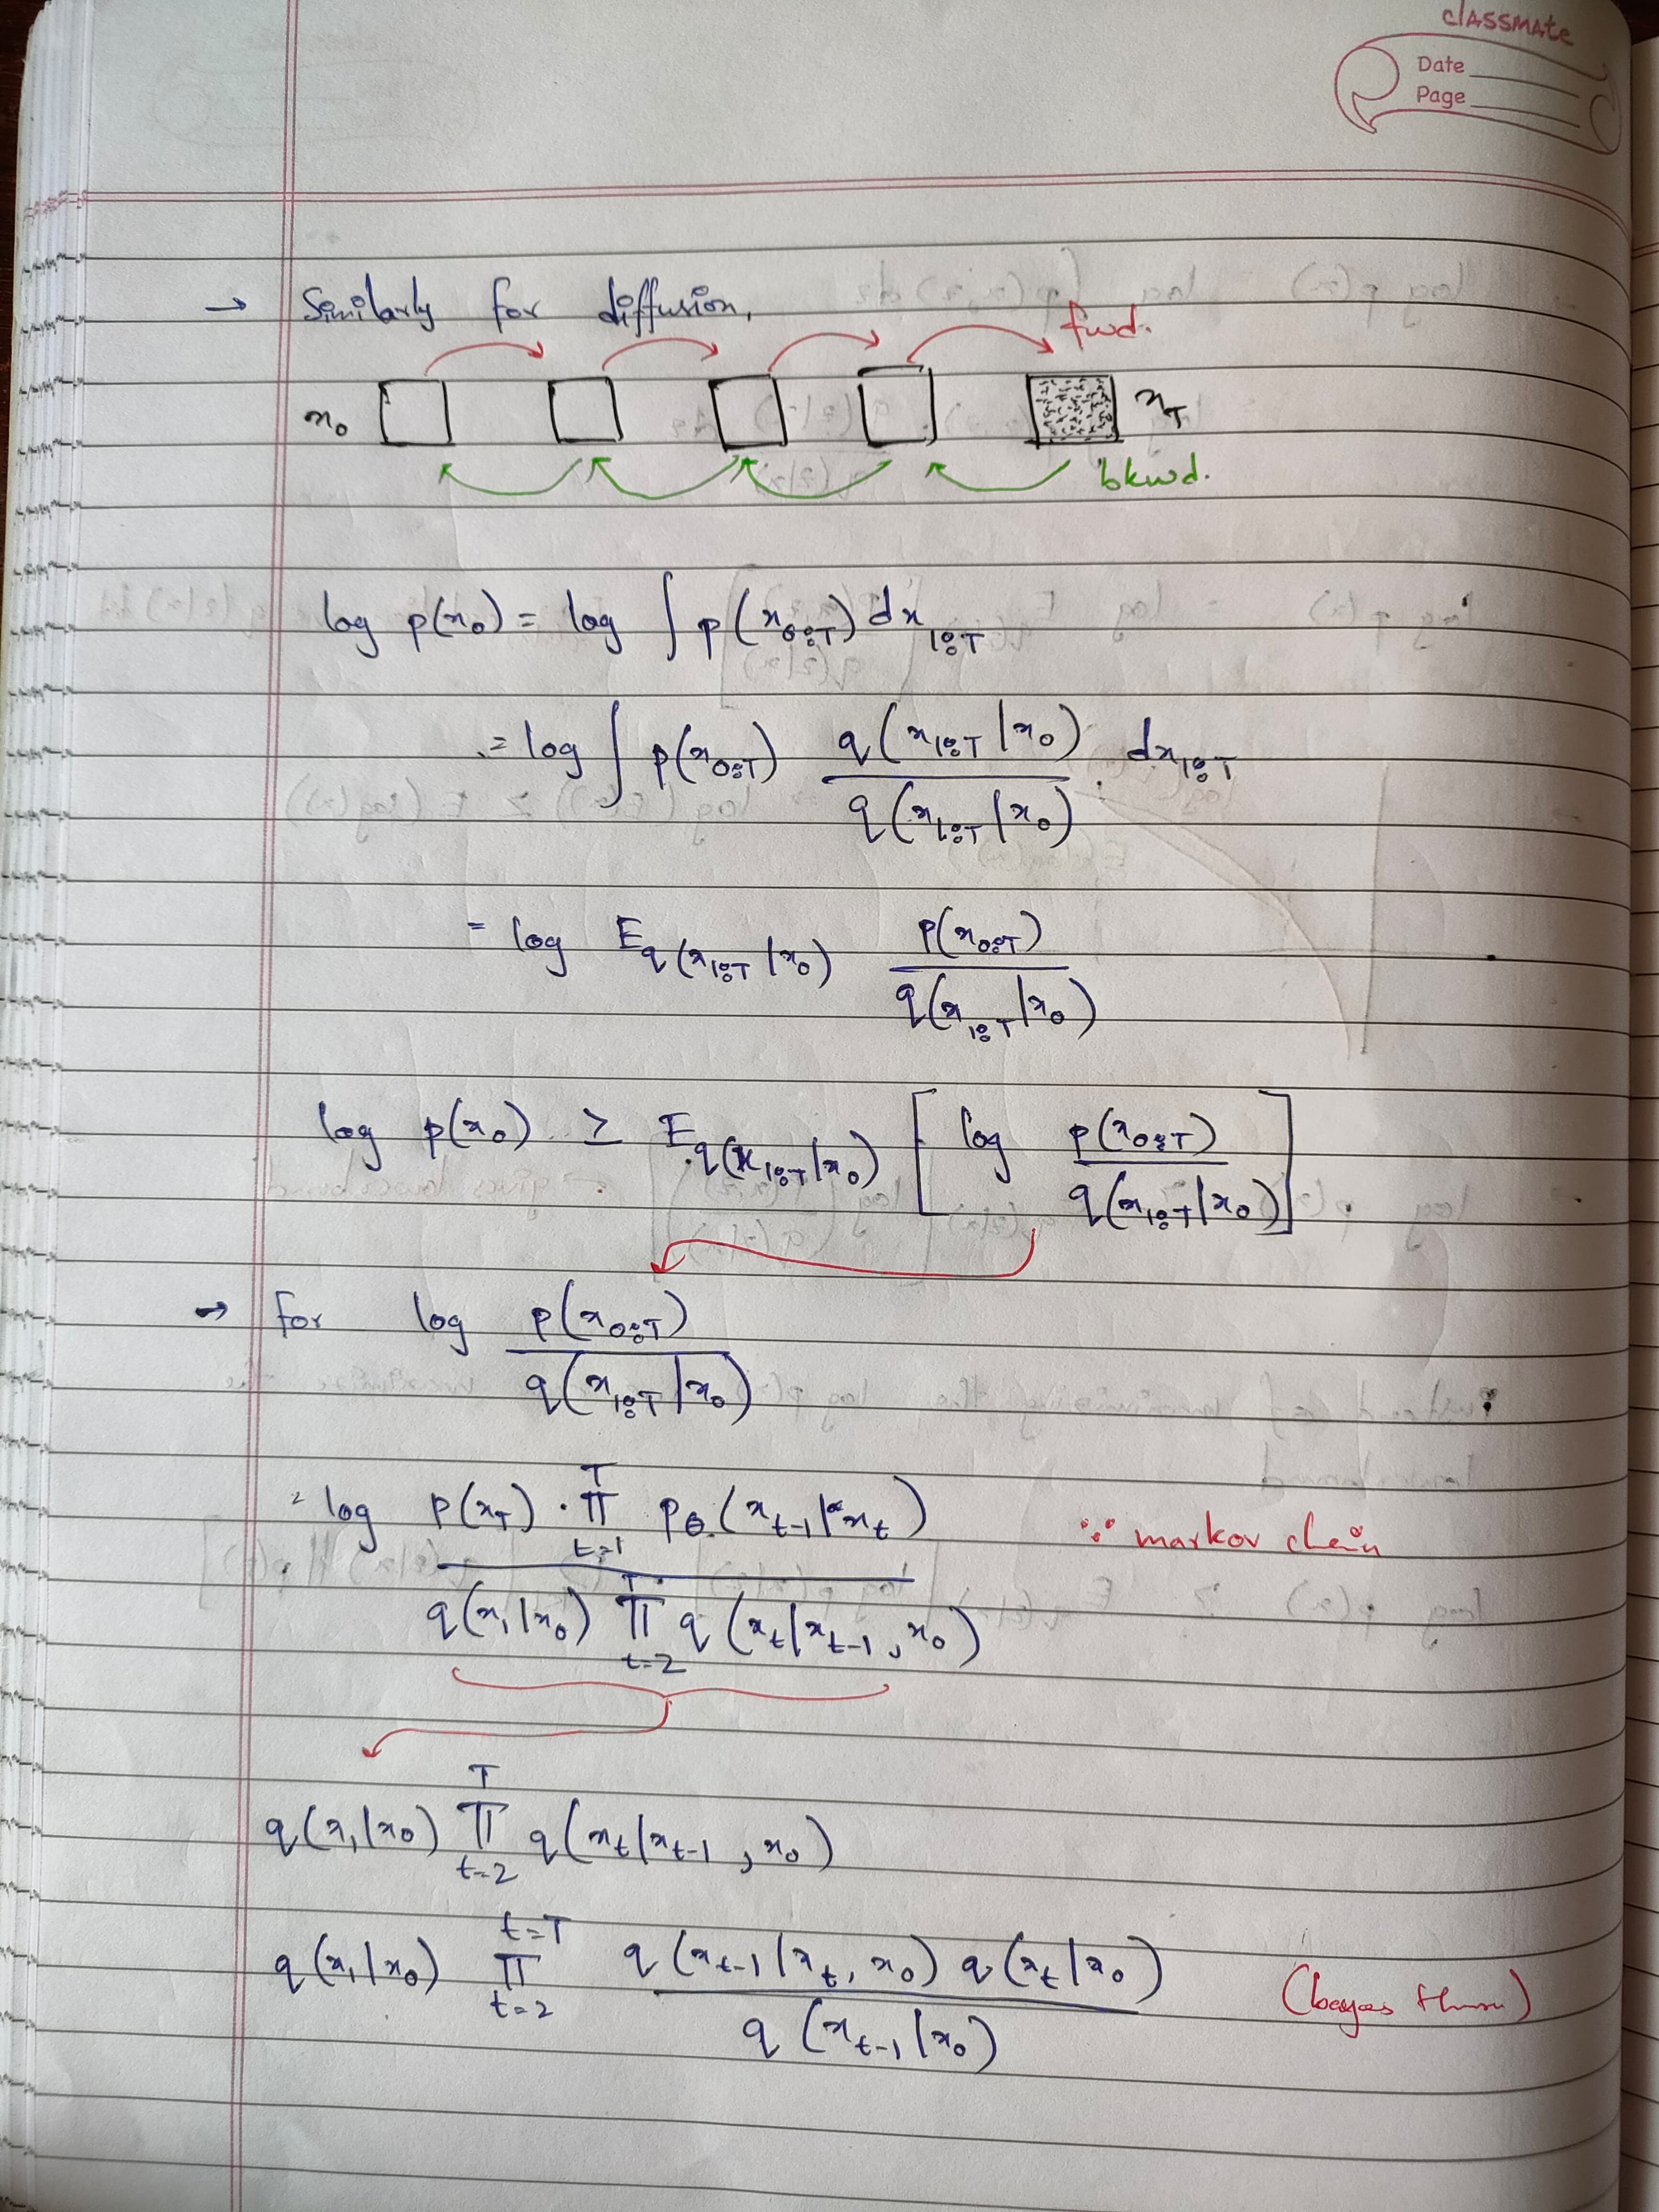 classmate
Date
Page
→ Similarly for diffusion,
fwd.
x₀ x_T
bkwd.
log p(x₀) = log ∫ p(x₀:T) dx₁:T
= log ∫ p(x₀:T) q(x₁:T|x₀) / q(x₁:T|x₀) . dx₁:T
= log E_q(x₁:T|x₀) p(x₀:T) / q(x₁:T|x₀)
log p(x₀) ≥ E_q(x₁:T|x₀) [ log p(x₀:T) / q(x₁:T|x₀) ]
→ for log p(x₀:T) / q(x₁:T|x₀)
= log p(x_T) · ∏_{t=1}^{T} p_θ(x_{t-1}|x_t) / q(x₁|x₀) ∏_{t=2}^{T} q(x_t|x_{t-1}, x₀) ∵ markov chain
q(x₁|x₀) ∏_{t=2}^{T} q(x_t|x_{t-1}, x₀)
q(x₁|x₀) ∏_{t=2}^{t=T} q(x_{t-1}|x_t, x₀) q(x_t|x₀) / q(x_{t-1}|x₀) (bayes